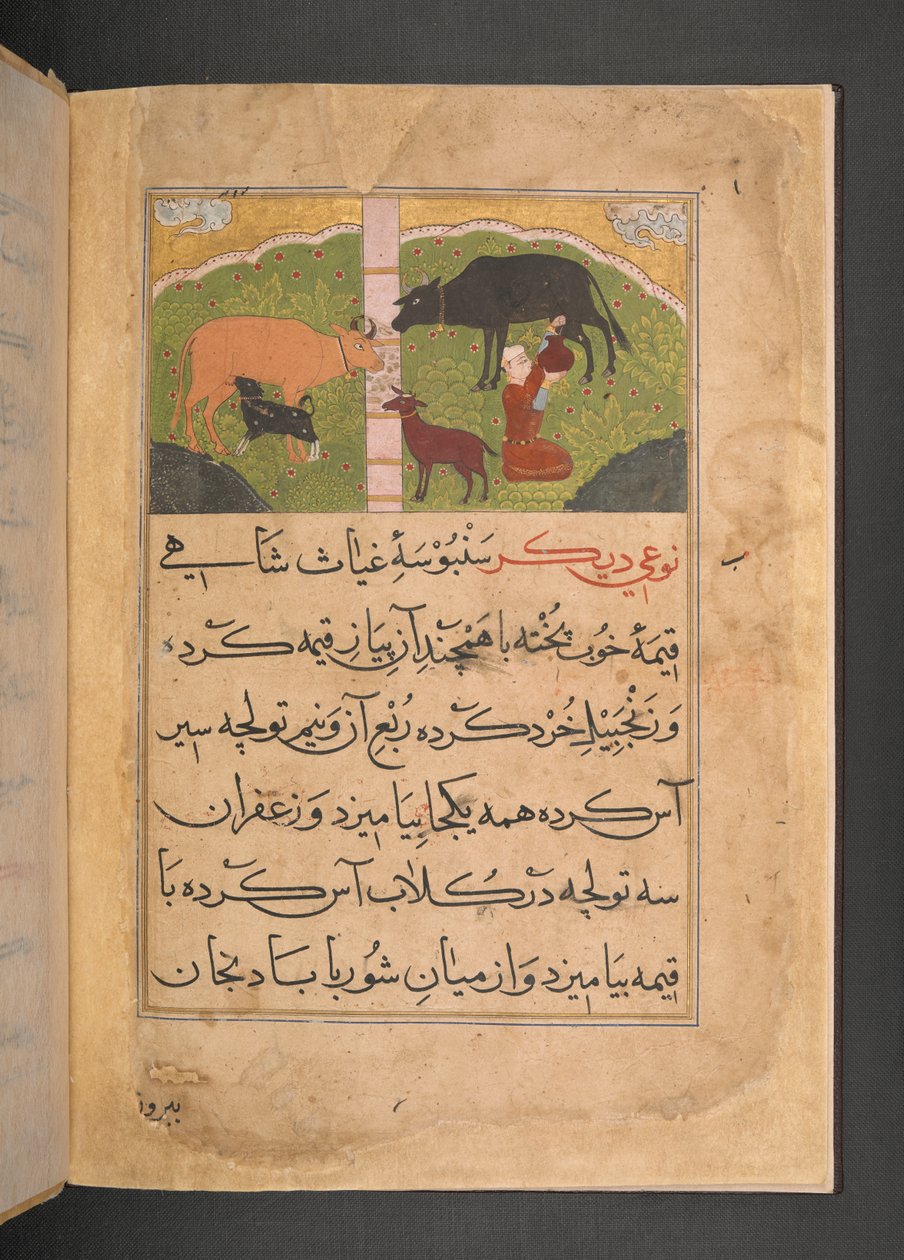 نوعي ديكر سَنْبُوْسَهٔ غياث شاهي
قيمهٔ خوُب پُخْته با هَمْچَنْدِ آن پيازِ قيمه كرده
وَ زَنْجَبِيْلِ خُرْد كرده رُبْعِ آن و نيم تولچه سير
آس كرده همه يكجا بيَاميزد وَ زعفران
سه تولچه دَر كُلاب آس كرده بَا
قيمه بيَاميزد وَ از ميانِ شوُربا بَادنجان
بيرون
ب
۱